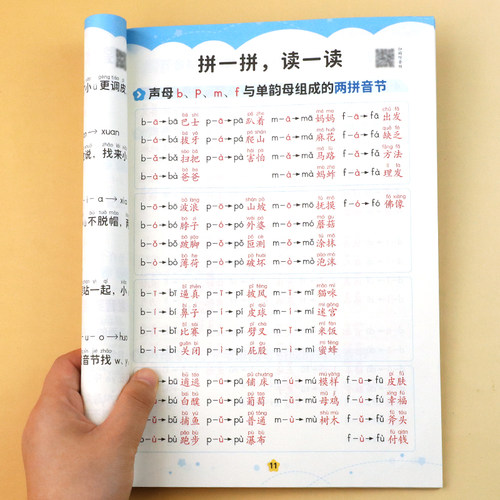 小u更调皮
xuan
说，找来小
i-a→xia
不脱帽，
站一起，小
-u-o→huo
音节找 w、y
拼一拼，读一读
声母 b、p、m、f 与单韵母组成的两拼音节
b-ā→bā 巴士 p-ā→pā 趴着 m-ā→mā 妈妈 f-ā→fā 出发
b-á→bá 拔牙 p-á→pá 爬山 m-á→má 麻花 f-á→fá 缺乏
b-ǎ→bǎ 扫把 p-à→pà 害怕 m-ǎ→mǎ 马路 f-ǎ→fǎ 方法
b-à→bà 爸爸 m-à→mà 蚂蚱 f-à→fà 理发
b-ō→bō 波浪 p-ō→pō 山坡 m-ō→mō 抚摸 f-ó→fó 佛像
b-ó→bó 脖子 p-ó→pó 外婆 m-ó→mó 蘑菇
b-ǒ→bǒ 跛脚 p-ǒ→pǒ 叵测 m-ǒ→mǒ 涂抹
b-ò→bò 薄荷 p-ò→pò 破坏 m-ò→mò 泡沫
b-ī→bī 逼真 p-ī→pī 披风 m-ī→mī 猫咪
b-í→bí 鼻子 p-í→pí 皮球 m-í→mí 迷宫
b-ǐ→bǐ 比赛 p-ǐ→pǐ 劈叉 m-ǐ→mǐ 米饭
b-ì→bì 关闭 p-ì→pì 屁股 m-ì→mì 蜜蜂
bū 逋逃 p-ū→pū 铺床 m-ú→mú 模样 f-ū→fū 皮肤
bú 白醭 p-ú→pú 葡萄 m-ǔ→mǔ 母鸡 f-ú→fú 幸福
bǔ 捕鱼 p-ǔ→pǔ 普通 m-ù→mù 树木 f-ǔ→fǔ 斧头
bù 跑步 p-ù→pù 瀑布 f-ù→fù 付钱
11